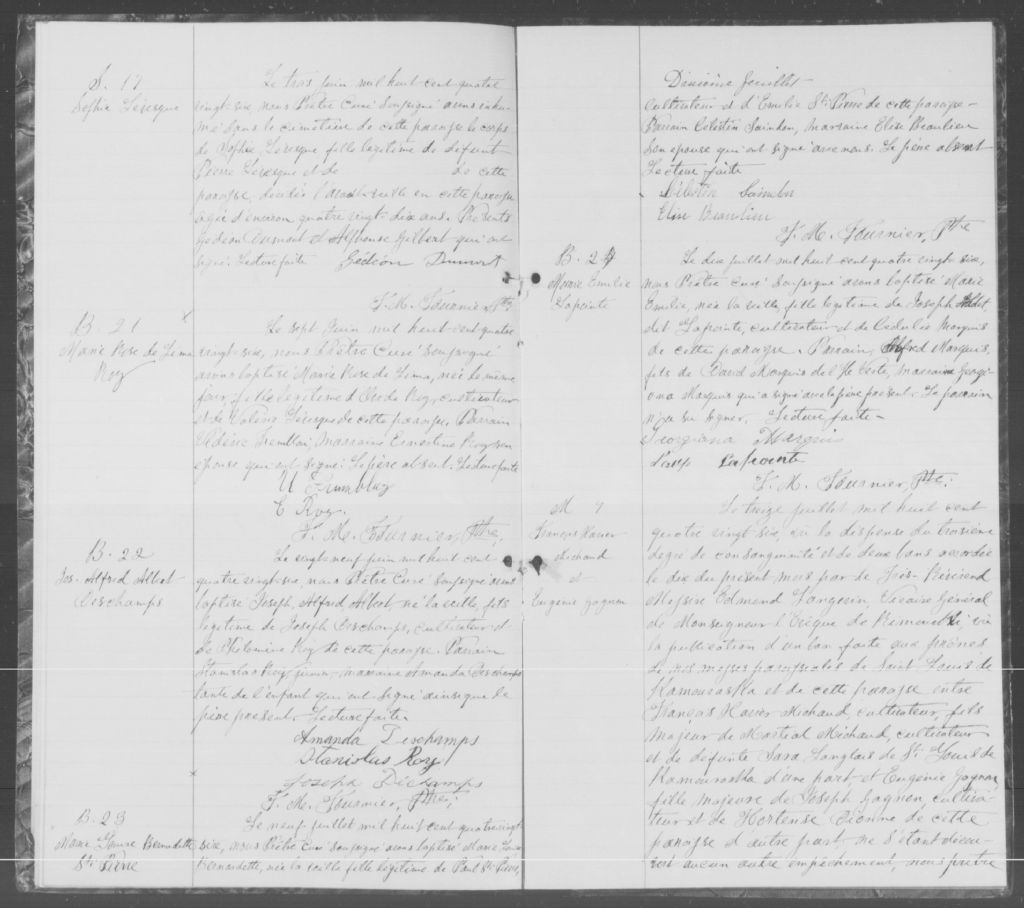 S. 17
Sophie Lévesque
Le trois juin mil huit cent quatre
vingt six, nous Prêtre Curé soussigné avons inhu-
mé dans le cimetière de cette paroisse le corps
de Sophie Lévesque fille légitime de défunt
Pierre Lévesque et de de cette
paroisse, décédée l'avant-veille en cette paroisse
agée d'environ quatre vingt dix ans. Présents
Gédéon Dumont et Alphonse Gilbert qui ont
signé. Lecture faite Gédéon Dumont
F. M. Fournier, Ptre
B. 21
Marie Rose de Lima
Roy
Le sept Juin mil huit cent quatre
vingt six, nous Prêtre Curé soussigné
avons baptisé Marie Rose de Lima, née le même
jour, fille légitime d' Roy, cultivateur
et de Lévesque de cette paroisse. Parrain
Tremblay, Marraine Ernestine Roy son
épouse qui ont signé. Le père absent. Lecture faite
U Tremblay
E Roy
F. M. Fournier, Ptre,
B. 22
Jos. Alfred Albert
Deschamps
Le vingt neuf juin mil huit cent
quatre vingt six, nous Prêtre Curé soussigné avons
baptisé Joseph, Alfred, Albert, né la veille, fils
légitime de Joseph Deschamps, cultivateur et
de Philomène Roy de cette paroisse. Parrain
Stanislas Roy, marraine Amanda Deschamps
tante de l'enfant qui ont signé ainsi que le
père présent. Lecture faite.
Amanda Deschamps
Stanislas Roy
Joseph Déchamps
F. M. Fournier, Ptre,
B. 23
Marie Laure Bernadette
St. Pierre
Le neuf juillet mil huit cent quatre vingt
six, nous Prêtre Curé soussigné avons baptisé Marie Laure
Bernadette, née la veille fille légitime de Paul St. Pierre,
Dixième feuillet
cultivateur et d'Emilie St. Pierre de cette paroisse
Parrain Célestin Saindon, marraine Elise Beaulieu
son épouse qui ont signé avec nous. Le père absent
Lecture faite
Célestin
Elise Beaulieu
F. M. Fournier, Ptre
B. 24
Marie Emilie
Lapointe
Le dix juillet mil huit cent quatre vingt six,
nous Prêtre Curé soussigné avons baptisé Marie
Emilie, née la veille, fille légitime de Joseph
dit Lapointe, cultivateur et de Cédulie Marquis
de cette paroisse. Parrain, Alfred Marquis,
fils de David Marquis de l'Ile Verte, marraine Georgi-
ana Marquis qui a signé avec le père présent. Le parrain
n'a su signer. Lecture faite
Georgiana Marquis
Lapointe
F. M. Fournier, Ptre.
M 7
François Xavier
Michaud
et
Eugénie Gagnon
Le treize juillet mil huit cent
quatre vingt six, vu la dispense du troisième
degré de consanguinité et de deux bans accordée
le dix du présent mois par le Très-Révérend
Messire Edmond Langevin, Vicaire Général
de Monseigneur l'Evêque de Rimouski, vu
la publication d'un ban faite aux prônes
de nos messes paroissiales de Saint Louis de
Kamouraska et de cette paroisse entre
François Xavier Michaud, cultivateur, fils
majeur de Martial Michaud, cultivateur
et de défunte Sara Langlais de St. Louis de
Kamouraska d'une part et Eugénie Gagnon
fille majeure de Joseph Gagnon, cultiva-
teur et de Hortense Dionne de cette
paroisse d'autre part ne s'étant décou-
vert aucun autre empêchement, nous prêtre